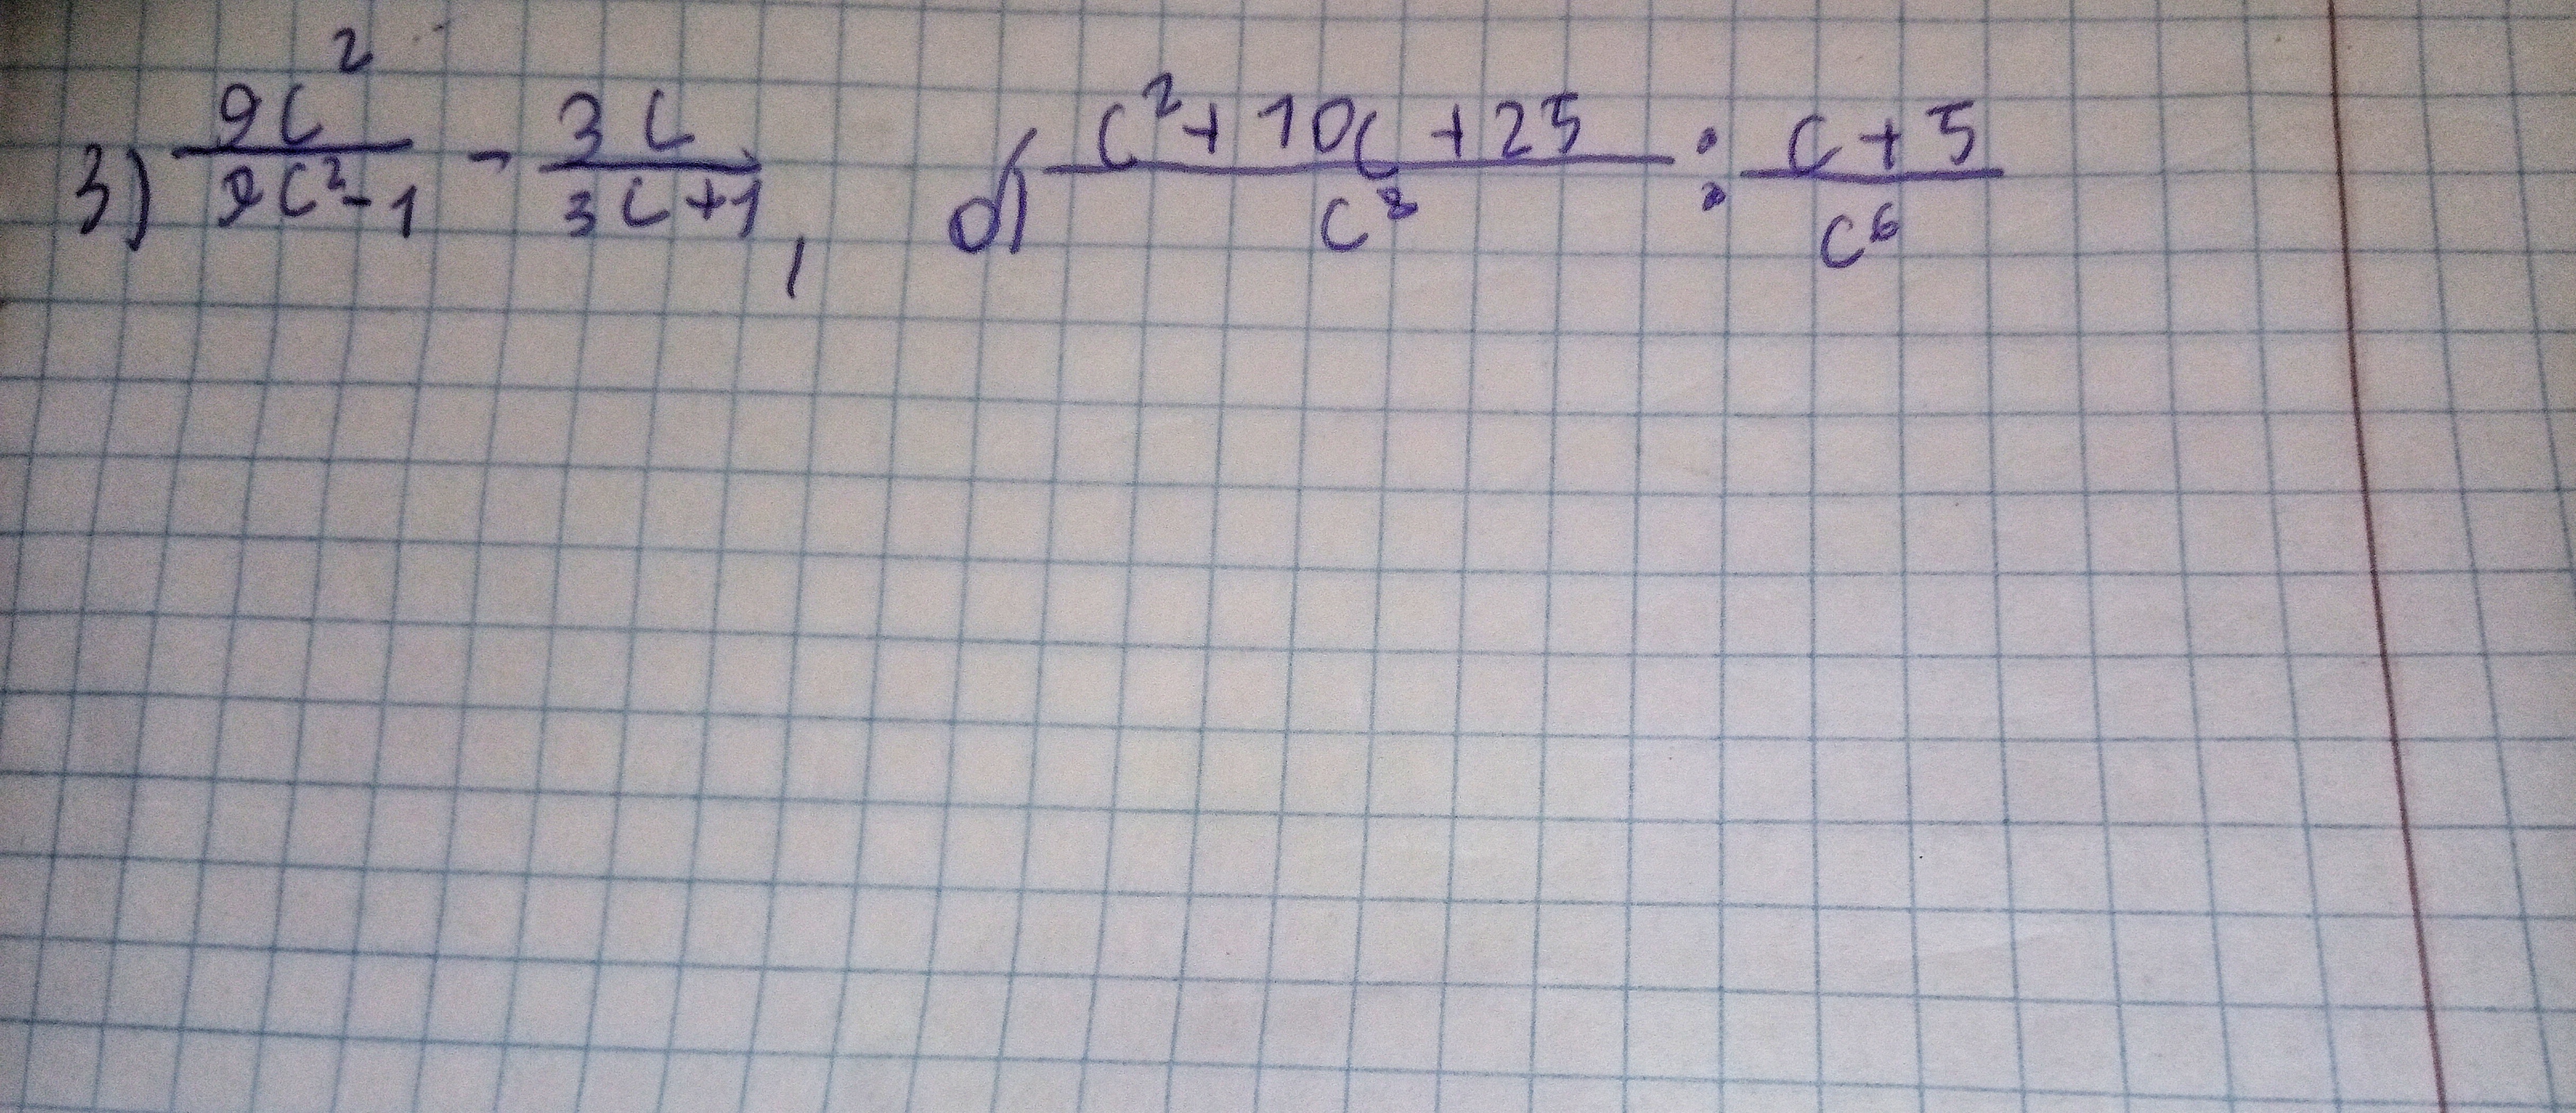 3) \frac{9c^2}{9c^2-1} - \frac{3c}{3c+1}, б) \frac{c^2+10c+25}{c^8} : \frac{c+5}{c^6}